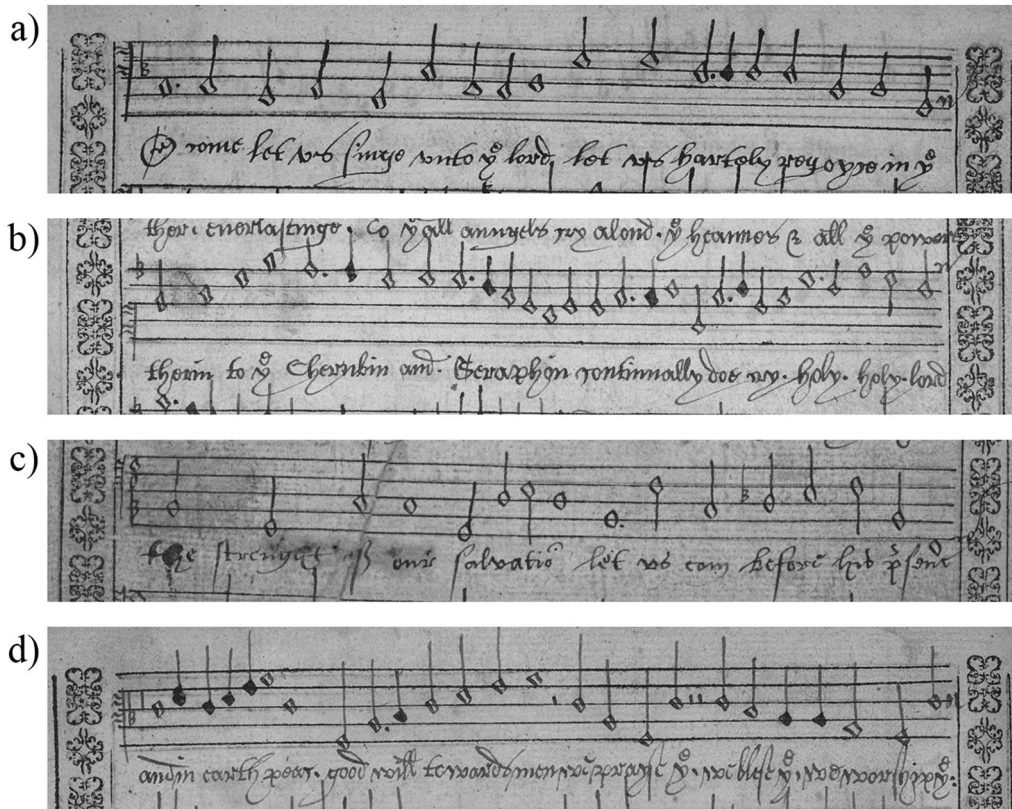 a)
O come let us singe unto yͤ lord let us hartely reyoyse in yͤ
b)
ther everlastinge. To yͤ all anngels cry aloud. yͤ heavens & all yͤ powers
therin to yͤ Cherubin and. Seraphin continually doe cry. holy. holy. lord
c)
the strenght of our salvatiō let us com before his p̄senc
d)
and in earth peac. good will towards men we prayse yͤ. we blese yͤ. we worshipe yͤ.